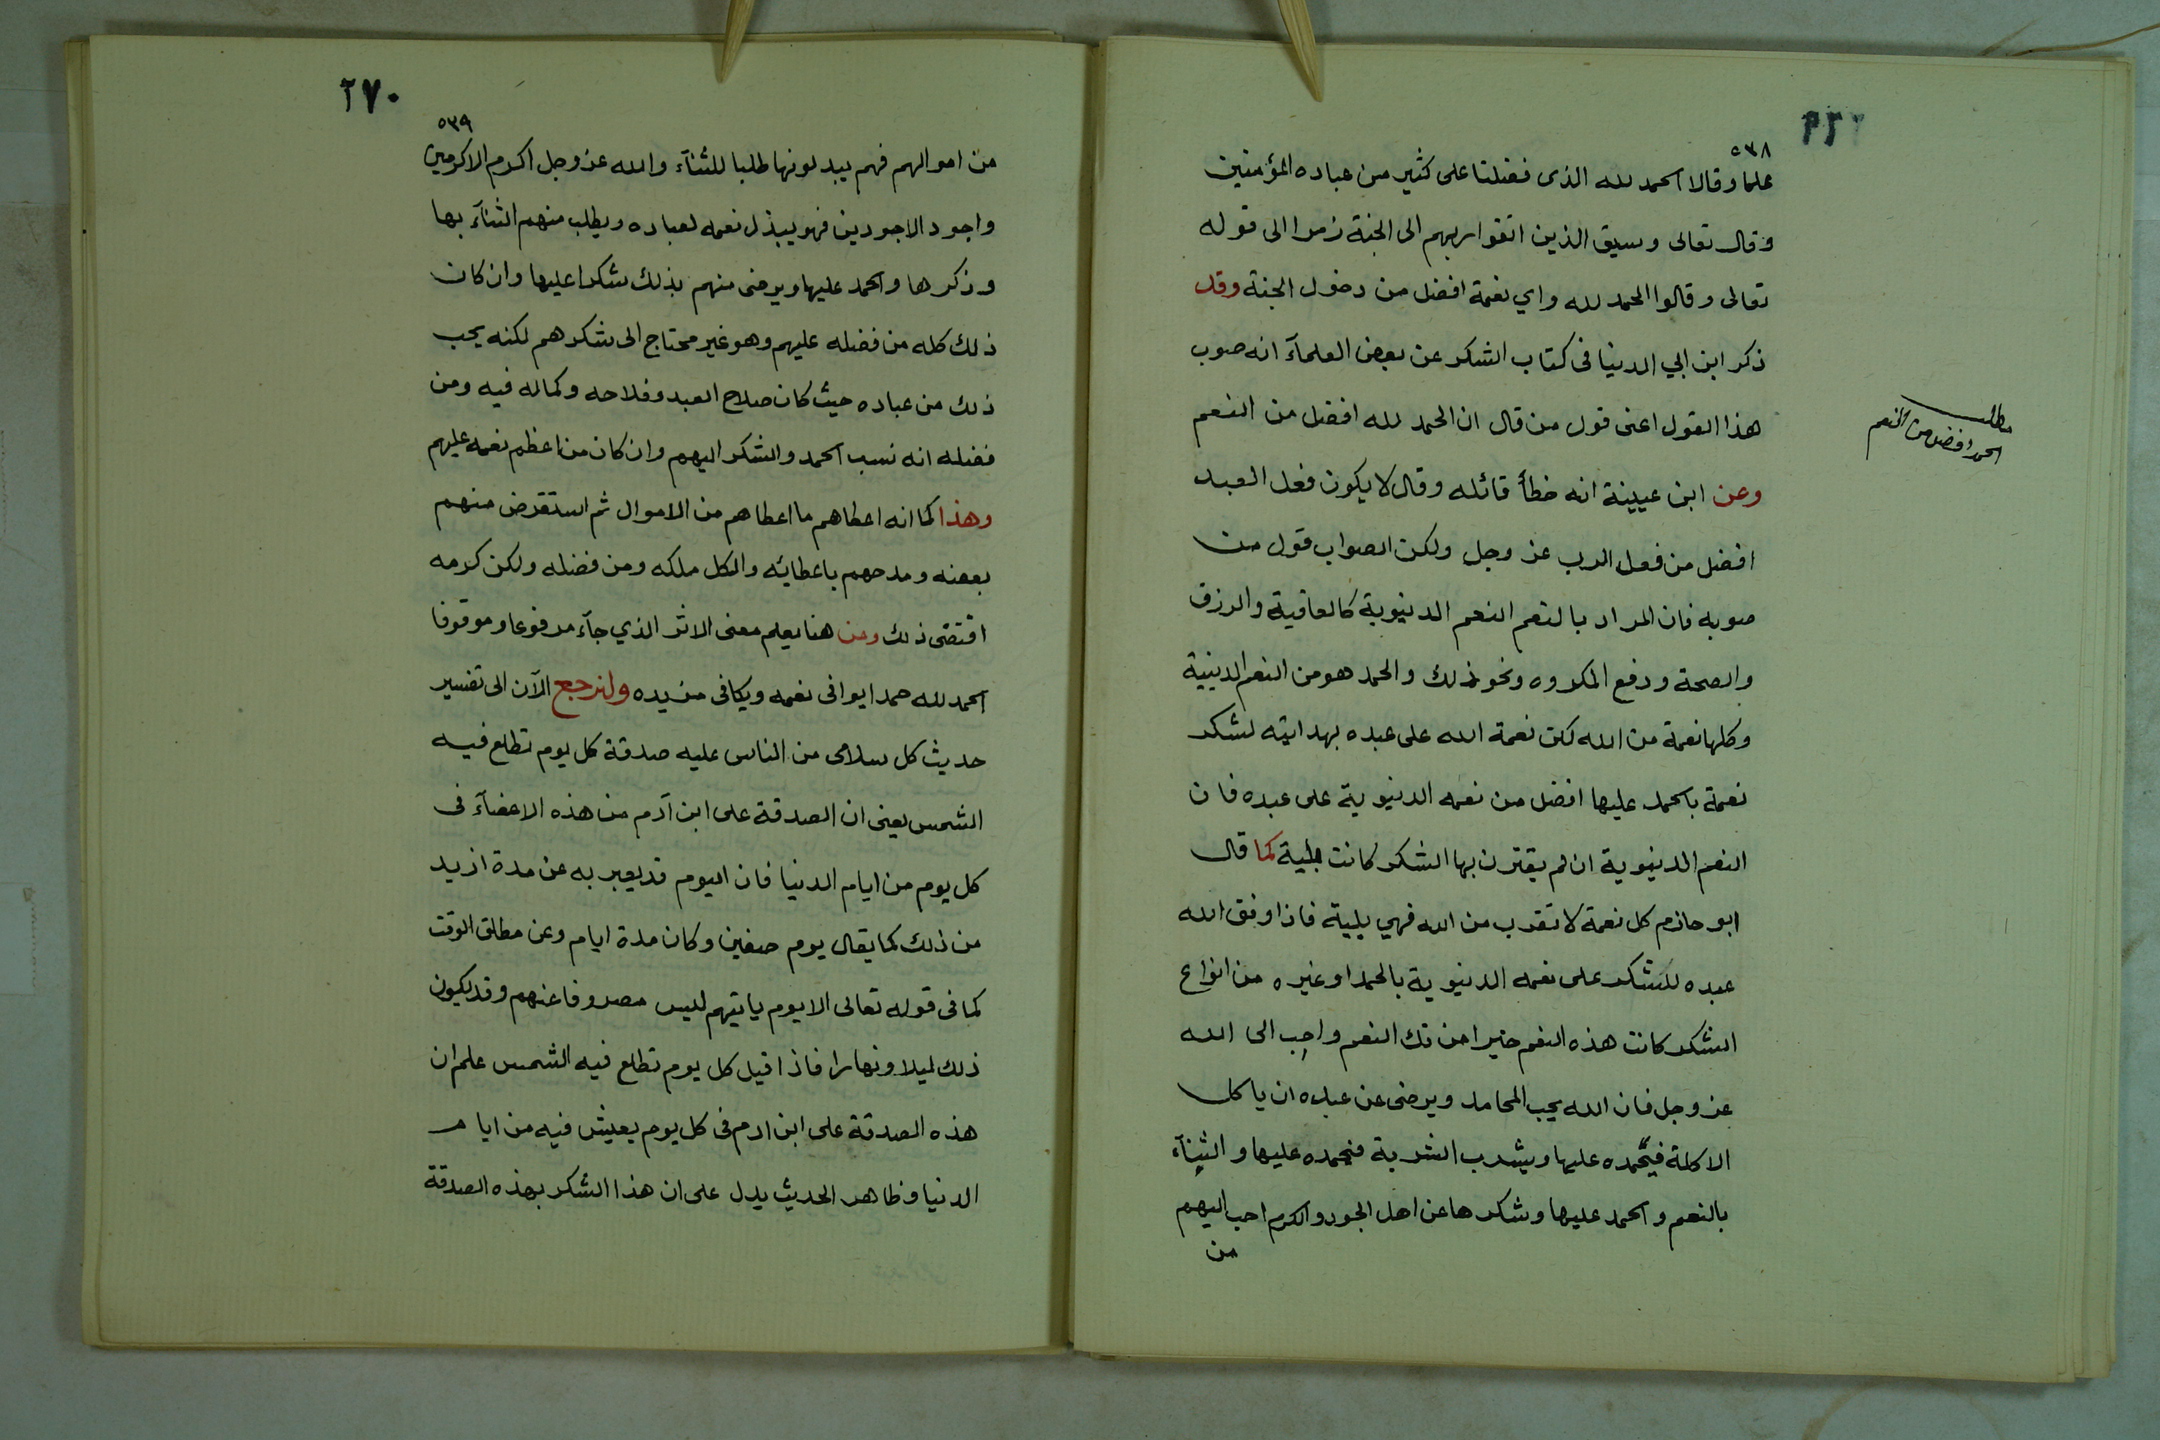 ٥٣٨
علما وقالا الحمد لله الذى فضلنا على كثير من عباده المؤمنين
وقال تعالى وسيق الذين اتقوا ربهم الى الجنة زمرا الى قوله
تعالى وقالوا الحمد لله واي نعمة افضل من دخول الجنة وقد
ذكر ابن ابي الدنيا فى كتاب الشكر عن بعض العلمآء انه صوب
هذا القول اعنى قول من قال ان الحمد لله افضل من النعم
مطلب
الحمد افضل من النعم
وعن ابن عيينة انه خطأ قائله وقال لا يكون فعل العبد
افضل من فعل الرب عز وجل ولكن الصواب قول من
صوبه فان المراد بالنعم النعم الدنيوية كالعافية والرزق
والصحة ودفع المكروه ونحو ذلك والحمد هو من النعم الدينية
وكلها نعمة من الله لكن نعمة الله على عبده بهدايته لشكر
نعمة بالحمد عليها افضل من نعمه الدنيوية على عبده فان
النعم الدنيوية ان لم يقترن بها الشكر كانت بلية كما قال
ابو حازم كل نعمة لا تقرب من الله فهي بلية فاذا وفق الله
عبده للشكر على نعمه الدنيوية بالحمد او غيره من انواع
الشكر كانت هذه النعم خيرا من تلك النعم واحب الى الله
عز وجل فان الله يحب المحامد ويرضى عن عبده ان ياكل
الاكلة فيحمده عليها ويشرب الشربة فيحمده عليها والثنآء
بالنعم والحمد عليها وشكرها عن اهل الجود والكرم احب اليهم
من
٢٧٠
٥٣٩
من اموالهم فهم يبدلونها طلبا للثنآء والله عز وجل اكرم الاكرمين
واجود الاجودين فهو يبذل نعمه لعباده ويطلب منهم الثنآء بها
وذكرها والحمد عليها ويرضى منهم بذلك شكرا عليها وان كان
ذلك كله من فضله عليهم وهو غير محتاج الى شكرهم لكنه يحب
ذلك من عباده حيث كان صلاح العبد وفلاحه وكماله فيه ومن
فضله انه نسب الحمد والشكر اليهم وان كان من اعظم نعمه عليهم
وهذا كما انه اعطاهم ما اعطاهم من الاموال ثم استقرض منهم
بعضه ومدحهم باعطائه والكل ملكه ومن فضله ولكن كرمه
اقتضى ذلك ومن هنا يعلم معنى الاثر الذي جآء مرفوعا وموقوفا
الحمد لله حمدا يوافى نعمه ويكافى مزيده ولنرجع الآن الى تفسير
حديث كل سلامى من الناس عليه صدقة كل يوم تطلع فيه
الشمس يعنى ان الصدقة على ابن آدم من هذه الاعضآء فى
كل يوم من ايام الدنيا فان اليوم قد يعبر به عن مدة ازيد
من ذلك كما يقال يوم صفين وكان مدة ايام وعن مطلق الوقت
كما فى قوله تعالى الا يوم ياتيهم ليس مصروفا عنهم وقد يكون
ذلك ليلا ونهارا فاذا قيل كل يوم تطلع فيه الشمس علم ان
هذه الصدقة على ابن ادم فى كل يوم يعيش فيه من ايام
الدنيا وظاهر الحديث يدل على ان هذا الشكر بهذه الصدقة